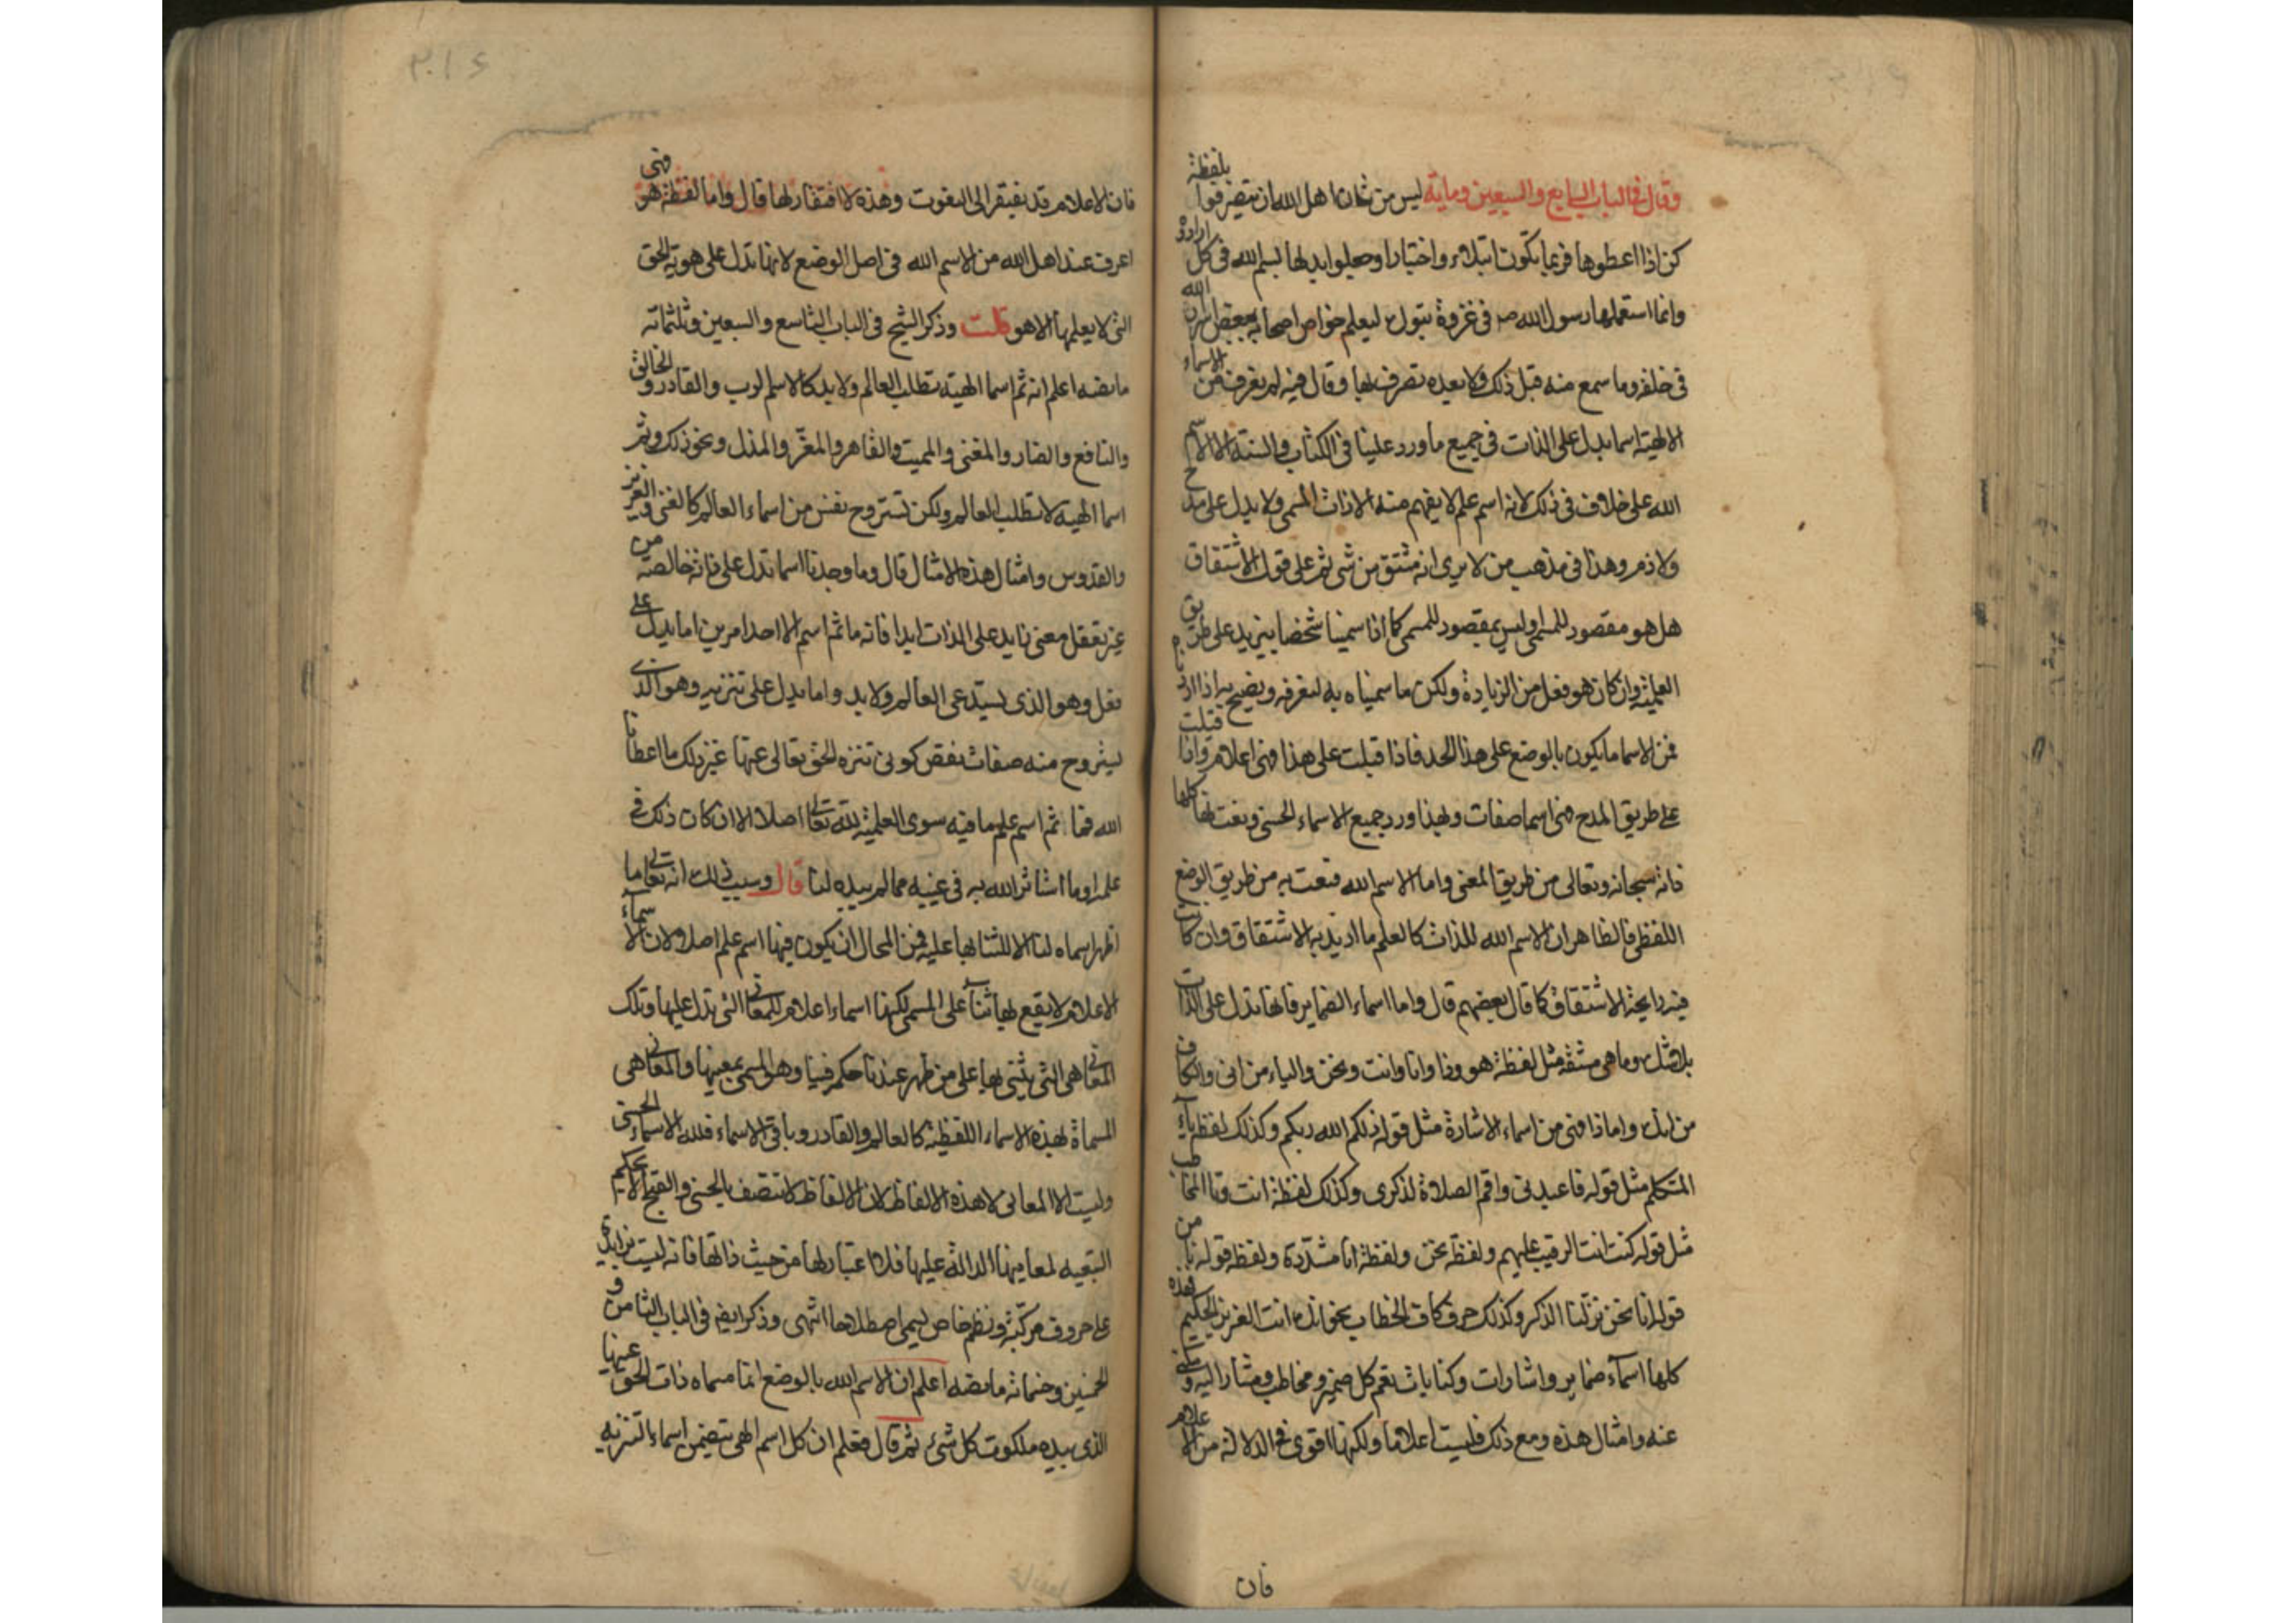 وقال في الباب السابع والسبعين وماية ليس من شان اهل الله ان يتصرفوا بلفظة
كن اذا اعطوها فربما يكون ابتلاء واختبارا وجعلوا بدلها بسم الله في كل ارادوا
وانما استعملها رسول الله صم في غزوة تبوك ليعلم خواص اصحابه ببعض اسرار الله
في خلقه وما سمع منه قبل ذلك ولا بعده تصرف بها وقال فيه لم يعرف من الاسماء
الالهية اسما يدل على الذات في جميع ما ورد علينا في الكتاب والسنة الا الاسم
الله على خلاف في ذلك لانه اسم علم لا يفهم منه الا ذات المسمى ولا يدل على مدح
ولا ذم وهذا في مذهب من لا يرى انه مشتق من شي ثم على قول الاشتقاق
هل هو مقصود للمسمى او ليس بمقصود للمسمى كما اذا سمينا شخصا بيزيد على طريق
العلمية وان كان هو فعل من الزيادة ولكن ما سميناه به لنعرفه ونصيح به اذا اردناه
فمن الاسما ما يكون بالوضع على هذا الحد فاذا قيلت على هذا فهي اعلام واذا قيلت
على طريق المدح فهي اسما صفات وبهذا ورد جميع الاسماء الحسنى ونعت بها كلها
ذاته سبحانه وتعالى من طريق المعنى واما الاسم الله فنعت به من طريق الوضع
اللفظي فالظاهر ان الاسم الله للذات كالعلم ما اريد به الاشتقاق وان كانت
فيه رايحة الاشتقاق كما قال بعضهم قال واما اسماء الضماير فانها تدل على الذات
بلا شك وما هي مشتقة مثل لفظة هو وذا وانا وانت ونحن والياء من اني والكاف
من انك واما ذا فهي من اسماء الاشارة مثل قوله ذلكم الله ربكم وكذلك لفظة ياء
المتكلم مثل قوله فاعبدني واقم الصلاة لذكري وكذلك لفظة انت وتا المخاطب
مثل قوله كنت انت الرقيب عليهم ولفظة نحن ولفظة انا مشددة ولفظه قوله نا من
قوله انا نحن نزلنا الذكر وكذلك حرف كاف الخطاب نحو انك انت العزيز الحكيم فهذه
كلها اسماء ضماير واشارات وكنايات تعم كل ضمير ومخاطب ومشار اليه ومكنى
عنه وامثال هذه ومع ذلك فليست اعلاما ولكنها اقوى في الدلالة من الاعلام
فان
فان الاعلام قد تفتقر الى النعوت وهذه لا افتقار لها قال واما لفظة هو فهي
اعرف عند اهل الله من الاسم الله في اصل الوضع لانها تدل على هوية الحق
التي لا يعلمها الا هو قلت وذكر الشيخ في الباب التاسع والسبعين وثلثماية
ما نصه اعلم انه ثم اسما الهية تطلب العالم ولا بد كالاسم الرب والقادر والخالق
والنافع والضار والمغني والمميت والقاهر والمعز والمذل ونحو ذلك وثم
اسما الهية لا تطلب العالم ولكن تستروح نفس من اسماء العالم كالغني والعزيز
والقدوس وامثال هذه الامثال قال وما وجدنا اسما تدل على ذاته خالصة من
غير تعقل معنى زايد على الذات ابدا فانه ما ثم اسم الا احد امرين اما يدل على
فعل وهو الذي يستدعي العالم ولا بد واما يدل على تنزيه وهو الذي
يستروح منه صفات نقص كوني تنزه الحق تعالى عنها غير ذلك ما اعطانا
الله فما ثم اسم علم ما فيه سوى العلمية لله تعالى اصلا الا ان كان ذلك في
علمه او ما استاثر الله به في غيبه مما لم يبده لنا قال وسبب ذلك انه تعالى ما
اظهر اسماه لنا الا للثنا بها عليه فمن المحال ان يكون فيها اسم علم اصلا ولان الاسماء
الاعلام لا يقع بها ثنا على المسمى لكنها اسماء اعلام للمعاني التي تدل عليها وتلك
المعاني هي التي يثنى بها على من ظهر عندنا حكمه فينا وهو المسمى بمعينها والمعاني هي
المسماة بهذه الاسماء اللفظية كالعالم والقادر وباقي الاسماء فلله الاسماء الحسنى
وليست الا المعاني لا هذه الالفاظ لان الالفاظ لا تتصف بالحسن والقبح الا بحكم
التبعيه لمعاينها الدالة عليها فلا اعتبار لها من حيث ذاتها فانه ليست بزايدة
على حروف مركبة ونظم خاص ليسمى اصطلاحا انتهى وذكر ايضا في الباب الثامن و
الخمسين وخمماية ما نصه اعلم ان الاسم الله بالوضع انما مسماه ذات الحق عينها
الذي بيده ملكوت كل شيء ثم قال فعلم ان كل اسم الهي يتضمن اسماء التنزيه